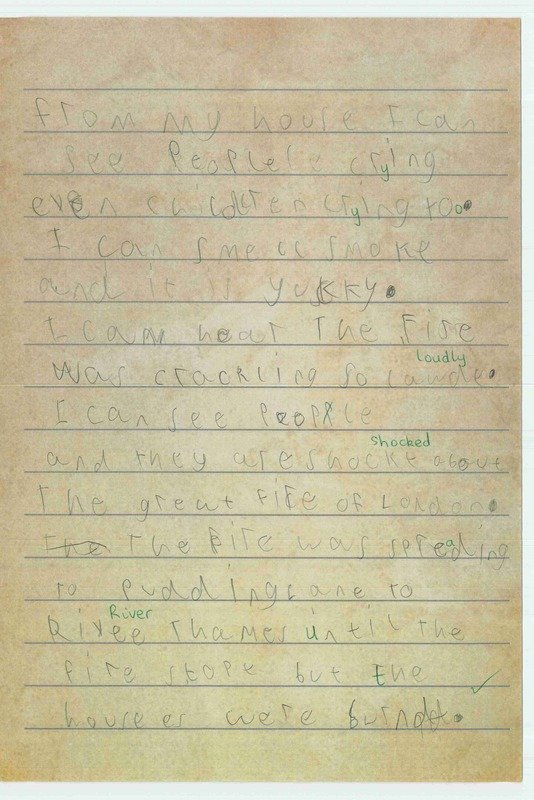 from my house I can
see Peoplele crying
even children crying too.
I can smell smoke
and it is yukky.
I can hear The fire
loudly
was crackling so laude.
I can see People
shocked
and they are shocke about
The great fire of London.
The The fire was spreading
to Puddinglane to
River
Rivee Thames until the
fire stope but the
houses were burndt.